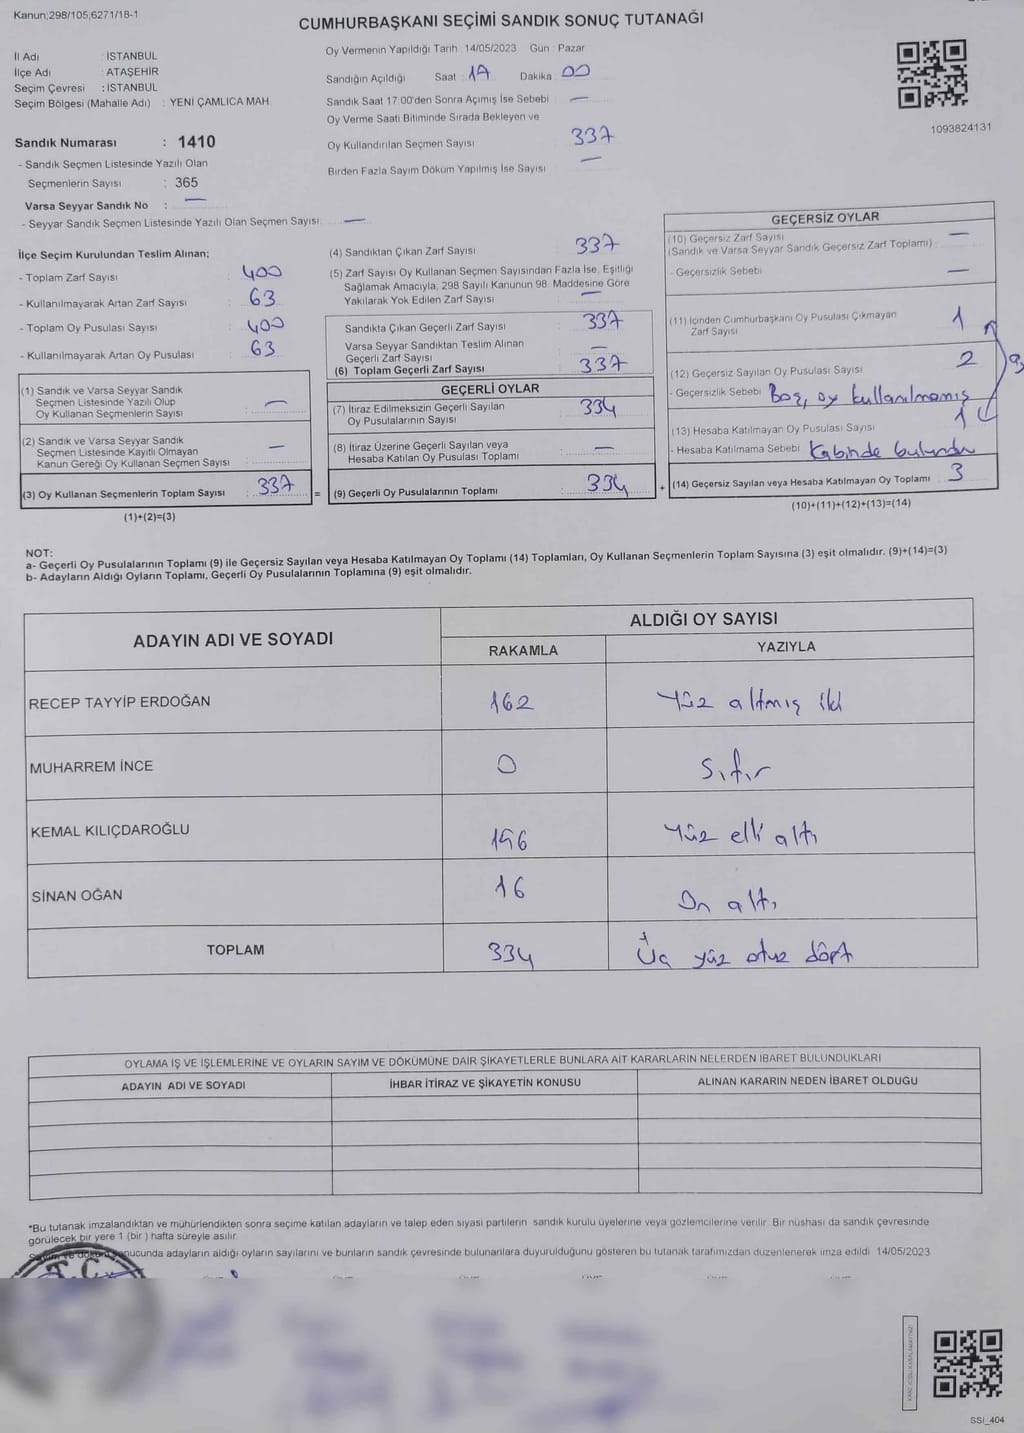 Kanun;298/105,6271/18-1
CUMHURBAŞKANI SEÇİMİ SANDIK SONUÇ TUTANAĞI
İl Adı : İSTANBUL
İlçe Adı : ATAŞEHİR
Seçim Çevresi : İSTANBUL
Seçim Bölgesi (Mahalle Adı) : YENİ ÇAMLICA MAH.
Oy Vermenin Yapıldığı Tarih : 14/05/2023 Gün : Pazar
Sandığın Açıldığı Saat : 17 Dakika : 00
Sandık Saat 17:00'den Sonra Açımış İse Sebebi : —
Oy Verme Saati Bitiminde Sırada Bekleyen ve
Oy Kullandırılan Seçmen Sayısı : 337
Birden Fazla Sayım Döküm Yapılmış İse Sayısı : —
1093824131
Sandık Numarası : 1410
- Sandık Seçmen Listesinde Yazılı Olan
Seçmenlerin Sayısı : 365
Varsa Seyyar Sandık No : —
- Seyyar Sandık Seçmen Listesinde Yazılı Olan Seçmen Sayısı : —
İlçe Seçim Kurulundan Teslim Alınan;
- Toplam Zarf Sayısı : 400
- Kullanılmayarak Artan Zarf Sayısı : 63
- Toplam Oy Pusulası Sayısı : 400
- Kullanılmayarak Artan Oy Pusulası : 63
(1) Sandık ve Varsa Seyyar Sandık
Seçmen Listesinde Yazılı Olup
Oy Kullanan Seçmenlerin Sayısı : —
(2) Sandık ve Varsa Seyyar Sandık
Seçmen Listesinde Kayıtlı Olmayan
Kanun Gereği Oy Kullanan Seçmen Sayısı : —
(3) Oy Kullanan Seçmenlerin Toplam Sayısı : 337
(1)+(2)=(3)
(4) Sandıktan Çıkan Zarf Sayısı : 337
(5) Zarf Sayısı Oy Kullanan Seçmen Sayısından Fazla İse, Eşitliği
Sağlamak Amacıyla, 298 Sayılı Kanunun 98. Maddesine Göre
Yakılarak Yok Edilen Zarf Sayısı : —
Sandıkta Çıkan Geçerli Zarf Sayısı : 337
Varsa Seyyar Sandıktan Teslim Alınan
Geçerli Zarf Sayısı : —
(6) Toplam Geçerli Zarf Sayısı : 337
GEÇERLİ OYLAR
(7) İtiraz Edilmeksizin Geçerli Sayılan
Oy Pusulalarının Sayısı : 334
(8) İtiraz Üzerine Geçerli Sayılan veya
Hesaba Katılan Oy Pusulası Toplamı : —
= (9) Geçerli Oy Pusulalarının Toplamı : 334
GEÇERSİZ OYLAR
(10) Geçersiz Zarf Sayısı
(Sandık ve Varsa Seyyar Sandık Geçersiz Zarf Toplamı) : —
- Geçersizlik Sebebi : —
(11) İçinden Cumhurbaşkanı Oy Pusulası Çıkmayan
Zarf Sayısı : 1
(12) Geçersiz Sayılan Oy Pusulası Sayısı : 2
- Geçersizlik Sebebi : Boş, oy kullanılmamış
(13) Hesaba Katılmayan Oy Pusulası Sayısı : 1
- Hesaba Katılmama Sebebi : Kabinde bulundu
+ (14) Geçersiz Sayılan veya Hesaba Katılmayan Oy Toplamı : 3
(10)+(11)+(12)+(13)=(14)
NOT:
a- Geçerli Oy Pusulalarının Toplamı (9) ile Geçersiz Sayılan veya Hesaba Katılmayan Oy Toplamı (14) Toplamları, Oy Kullanan Seçmenlerin Toplam Sayısına (3) eşit olmalıdır. (9)+(14)=(3)
b- Adayların Aldığı Oyların Toplamı, Geçerli Oy Pusulalarının Toplamına (9) eşit olmalıdır.
ADAYIN ADI VE SOYADI ALDIĞI OY SAYISI
RAKAMLA YAZIYLA
RECEP TAYYİP ERDOĞAN 162 Yüz altmış iki
MUHARREM İNCE 0 Sıfır
KEMAL KILIÇDAROĞLU 156 Yüz elli altı
SİNAN OĞAN 16 On altı
TOPLAM 334 Üç yüz otuz dört
OYLAMA İŞ VE İŞLEMLERİNE VE OYLARIN SAYIM VE DÖKÜMÜNE DAİR ŞİKAYETLERLE BUNLARA AİT KARARLARIN NELERDEN İBARET BULUNDUKLARI
ADAYIN ADI VE SOYADI İHBAR İTİRAZ VE ŞİKAYETİN KONUSU ALINAN KARARIN NEDEN İBARET OLDUĞU
*Bu tutanak imzalandıktan ve mühürlendikten sonra seçime katılan adayların ve talep eden siyasi partilerin sandık kurulu üyelerine veya gözlemcilerine verilir. Bir nüshası da sandık çevresinde
görülecek bir yere 1 (bir ) hafta süreyle asılır.
Sayım ve döküm sonucunda adayların aldığı oyların sayılarını ve bunların sandık çevresinde bulunanlara duyurulduğunu gösteren bu tutanak tarafımızdan düzenlenerek imza edildi 14/05/2023
T.C.
SSI_404